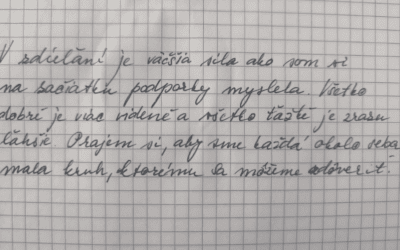 V zdieľaní je väčšia sila ako som si
na začiatku podporby myslela. Všetko
dobré je viac videné a všetko ťažké je zrazu
ľahšie. Prajem si, aby sme každá okolo seba
mala kruh, ktorému sa môžeme dôveriť.